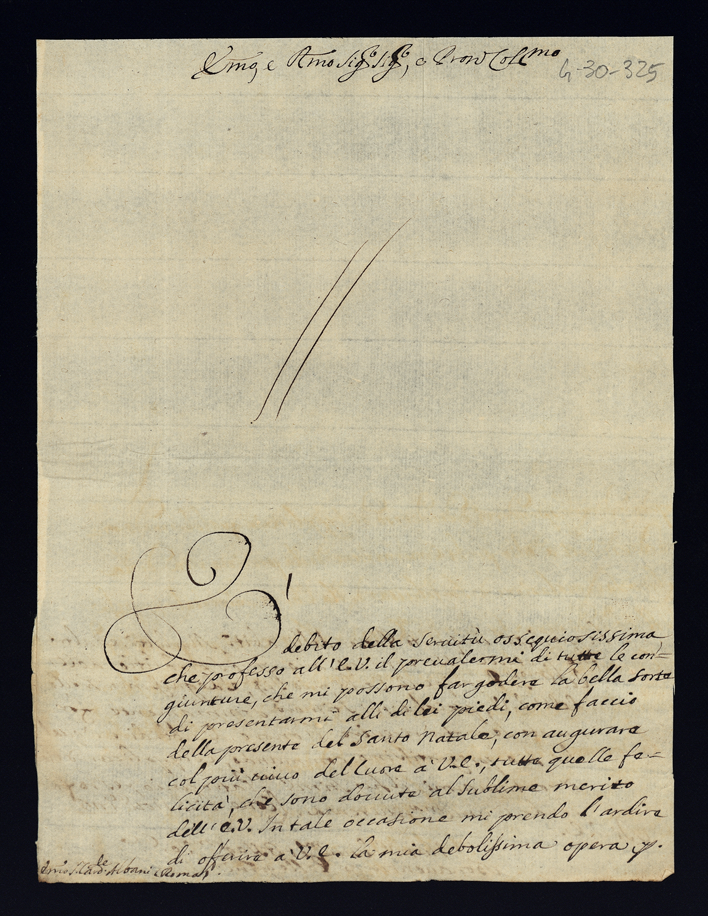 Emo, e Rmo Sigr Sigr, e Pron Colmo
4-30-325
È debito della servitù ossequiosissima
che professo all'E.V. il prevalermi di tutte le con=
giunture, che mi possono far godere la bella sorte
di presentarmi alli di lei piedi, come faccio
della presente del Santo Natale, con augurare
col più vivo del Cuore à V.E., tutte quelle fe=
licità, che sono dovute al sublime merito
dell'E.V. In tale occasione mi prendo l'ardire
di offerire à V.E. la mia debolissima opera
Albani Roma